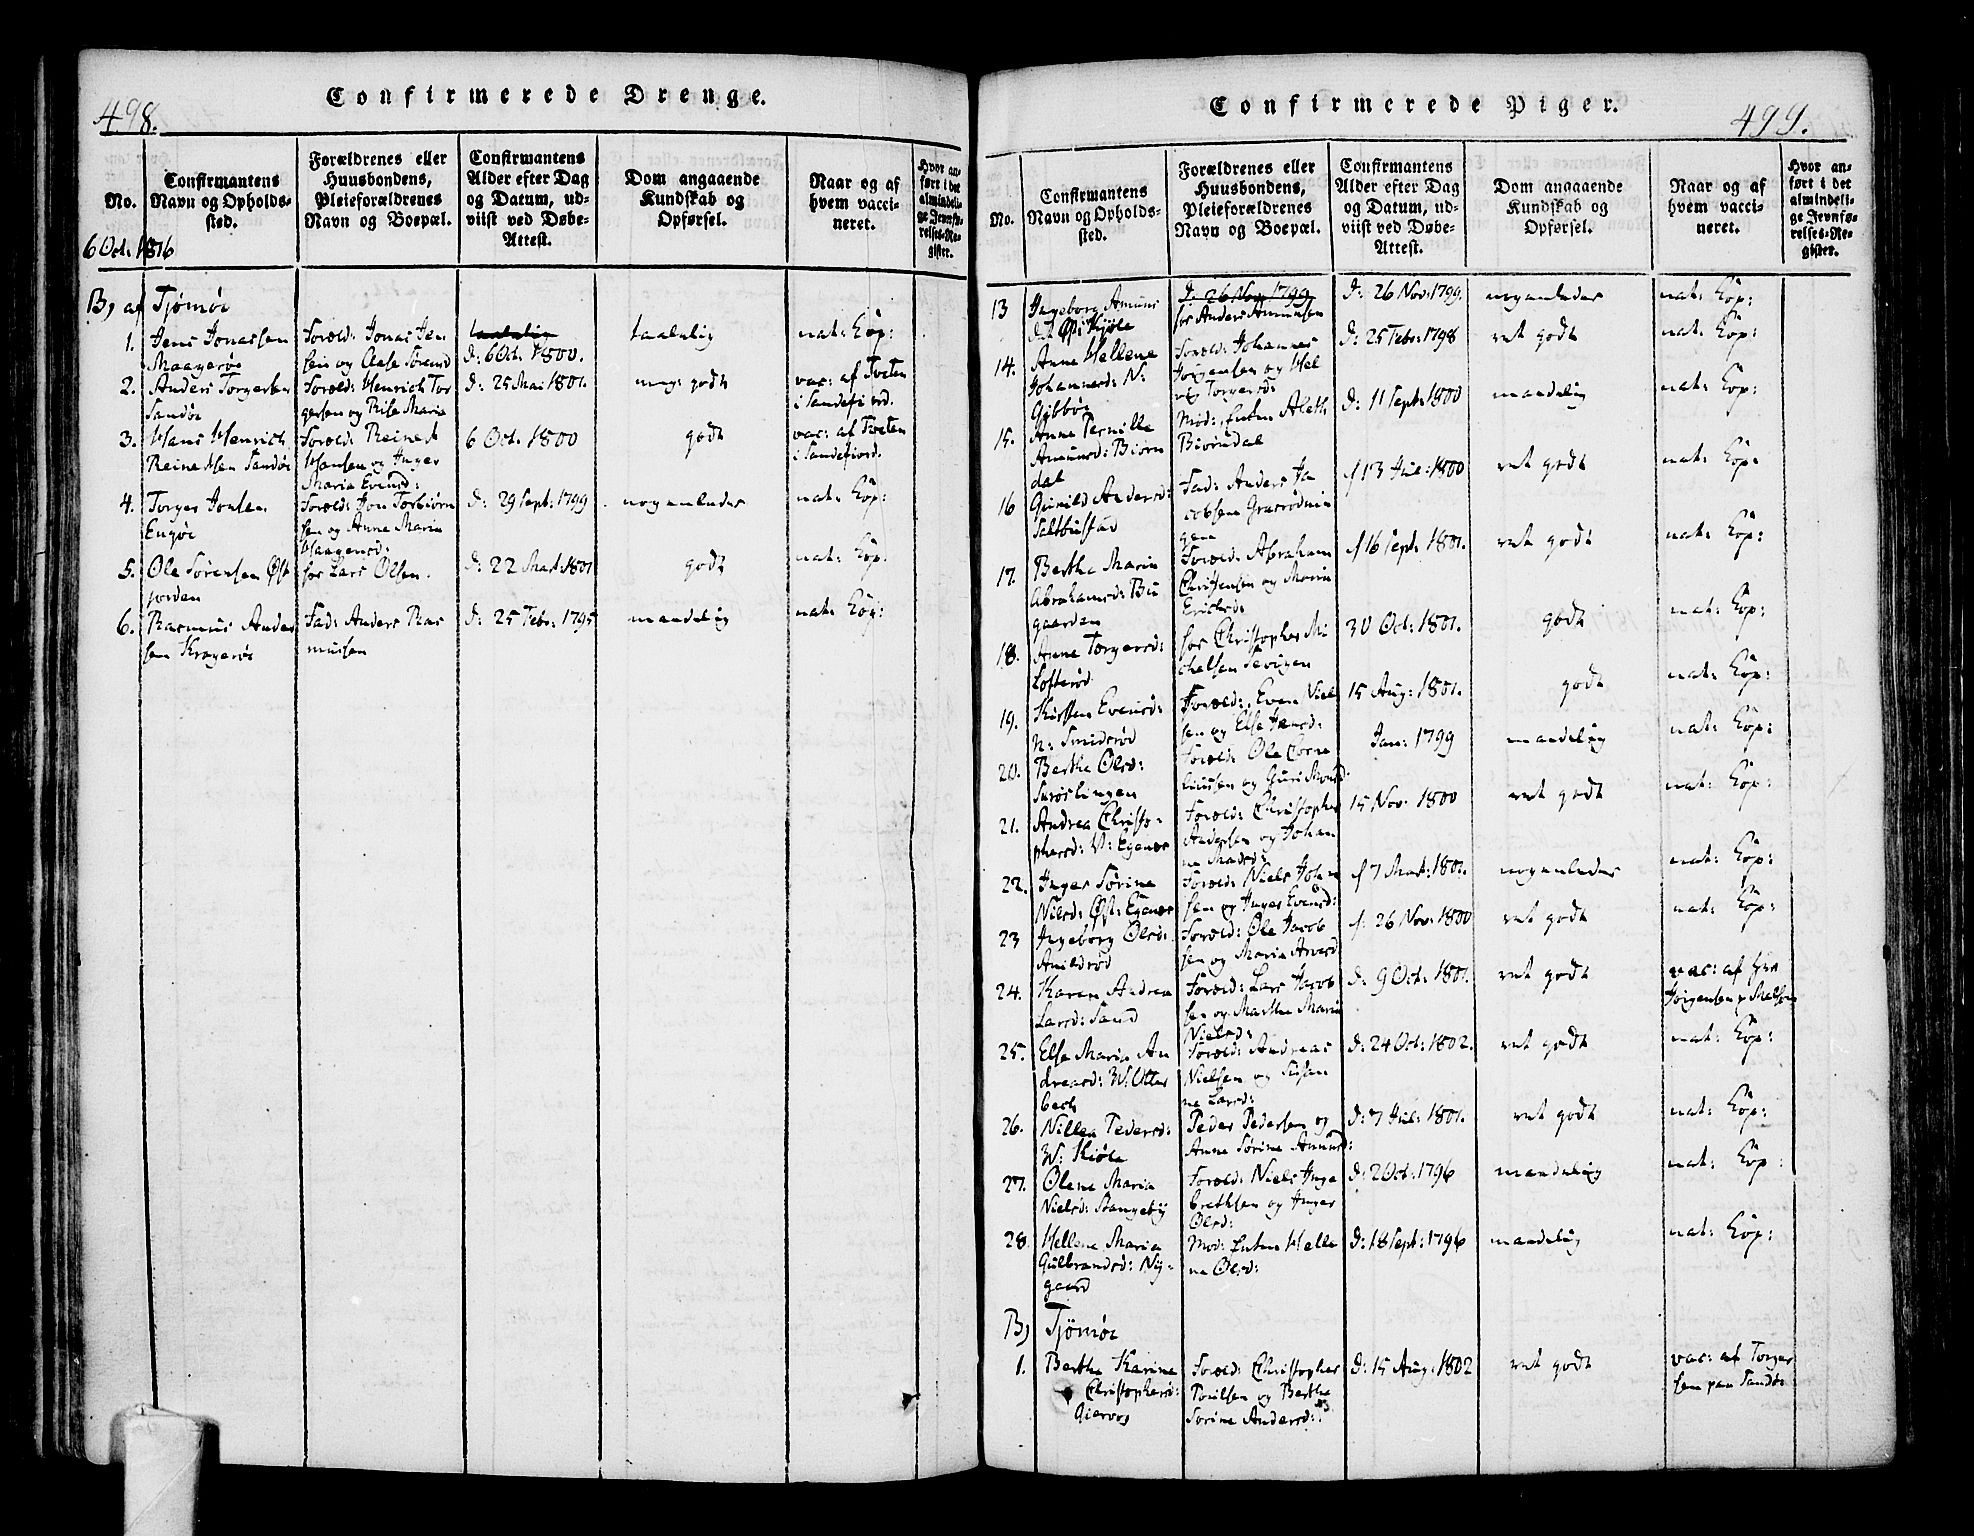 498.
Confirmerede Drenge.
No.
Confirmantens
Navn og Opholds-
sted.
Forældrenes eller
Huusbondens,
Pleieforældrenes
Navn og Boepæl.
Confirmantens
Alder efter Dag
og Datum, ud-
viist ved Døbe-
Attest.
Dom angaaende
Kundskab og
Opførsel.
Naar og af
hvem vacci-
neret.
Hvor an-
ført i det
almindeli-
ge Jevnfø-
relses-Re-
gister.
6 Oct. 1816
B, af Tjømøe
1. Jens Jonassen
Maagerøe
Foræld: Jonas Jen
sen og Aase Sørensd
d: 6 Oct. 1800.
taalelig
nat: Kop:
2. Anders Torgersen
Sandøe
Foræld: Henrich Tor
gersen og Rise Maria
d: 25 Mai 1801.
meg: godt
vac: af Tveten
i Sandefiord.
3. Hans Henrich
Reinertsen Sandøe
Foræld: Reinert
Hansen og Inger
Maria Evensd:
6 Oct. 1800
godt
vac: af Tveten
i Sandefiord.
4. Torger Jonsen
Engøe
Foræld: Jon Torbiørn
sen og Anne Maria
Haagensd:
d: 29 Sept: 1799
nogenledes
nat: Kop:
5. Ole Sørensen Øst
jorden
for Lars Olsen.
d: 22 Mart 1801
godt
nat: Kop:
6. Rasmus Ander
sen Kragerøe
Fad: Anders Ras
mussen
d: 25 Febr: 1795
maadelig
nat: Kop:
Confirmerede Piger.
499.
No.
Confirmantens
Navn og Opholds-
sted.
Forældrenes eller
Huusbondens,
Pleieforældrenes
Navn og Boepæl.
Confirmantens
Alder efter Dag
og Datum, ud-
viist ved Døbe-
Attest.
Dom angaaende
Kundskab og
Opførsel.
Naar og af
hvem vacci-
neret.
Hvor an-
ført i det
almindeli-
ge Jevnfø-
relses-Re-
gister.
13 Ingeborg Amuns
dat Øst Kjøle
d: 26 Nov: 1799
for Anders Amunsen
d: 26 Nov: 1799.
nogenledes
nat: Kop:
14. Anne Hellene
Johannesd: N:
Gibbøe
Foræld: Johannes
Jørgensen og Hel
vig Torgersd:
d: 25 Febr: 1798
ret godt
nat: Kop:
15. Anne Pernille
Amunsd: Biørn
dal
Mod: Enken Aleth
Biørndal
d: 11 Sept: 1800
maadelig
nat: Kop:
16 Gunild Andersd:
Saltbustad
Fad: Anders Ja
cobsen Græsrødnin
gen
f 13 Jul: 1800
ret godt
nat: Kop:
17. Berthe Maria
Abrahamsd: Bu
gaarden
Foræld: Abraham
Christensen og Maria
Erichsd:
f 16 Sept: 1801.
ret godt
nat: Kop:
18. Anne Torgersd:
Lofterød
for Christopher Mi
chelsen Sevigen
30 Oct: 1801.
godt
nat: Kop:
19. Kirsten Evensd:
N: Smiderød
Foræld: Even Niel
sen og Else Jensd:
15 Aug: 1801.
godt
nat: Kop:
20. Berthe Olsd:
Foræld: Ole Corne
liussen og Guri
Jan: 1799
maadelig
nat: Kop:
21. Andrea Christo-
phersd: V: Egenes
Foræld: Christopher
Andersen og Johan
ne Madsd:
15 Nov: 1800
ret godt
nat: Kop:
22. Inger Sørine
Nielsd: Øst: Egenes
Foræld: Niels John
sen og Inger Evensd:
f 7 Mart: 1801.
nogenledes
nat: Kop:
23 Ingeborg Olsd:
Amildrød
Foræld: Ole Jacob
sen og Maria Arvesd
f. 26 Nov: 1800
ret godt
nat: Kop:
24. Karen Andrea
Larsd: Sand
Foræld: Lars Jacob
sen og Marthe Maria
Nielsd:
d: 9 Oct: 1801.
ret godt
vac: af
Jørgensen p Melsom
25. Else Maria An
dreasd: W: Otter
bech
Foræld: Andreas
Nielsen og Susan
ne Larsd:
d: 24 Oct: 1802.
ret godt
nat: Kop:
26. Nillea Pedersd:
W: Kiøle
Peder Pedersen og
Anne Sørine Amunsd:
d: 7 Jul: 1801.
ret godt
nat: Kop:
27. Olene Maria
Nielsd: Stangebÿ
Foræld: Niels Inge
brethsen og Inger
Olsd:
d: 2 Oct: 1796
maadelig
nat: Kop:
28 Hellene Maria
Gulbrandsd: Ny-
gaard
Mod: Enken Helle
ne Olsd:
d: 18 Sept: 1796
maadelig
nat: Kop:
B, Tjømøe
1. Berthe Karine
Christophersd:
Giervog
Foræld: Christopher
Poulsen og Berthe
Sørine Andersd:
d: 15 Aug: 1802
ret godt
vac: af Torger
sen paa Sandøe